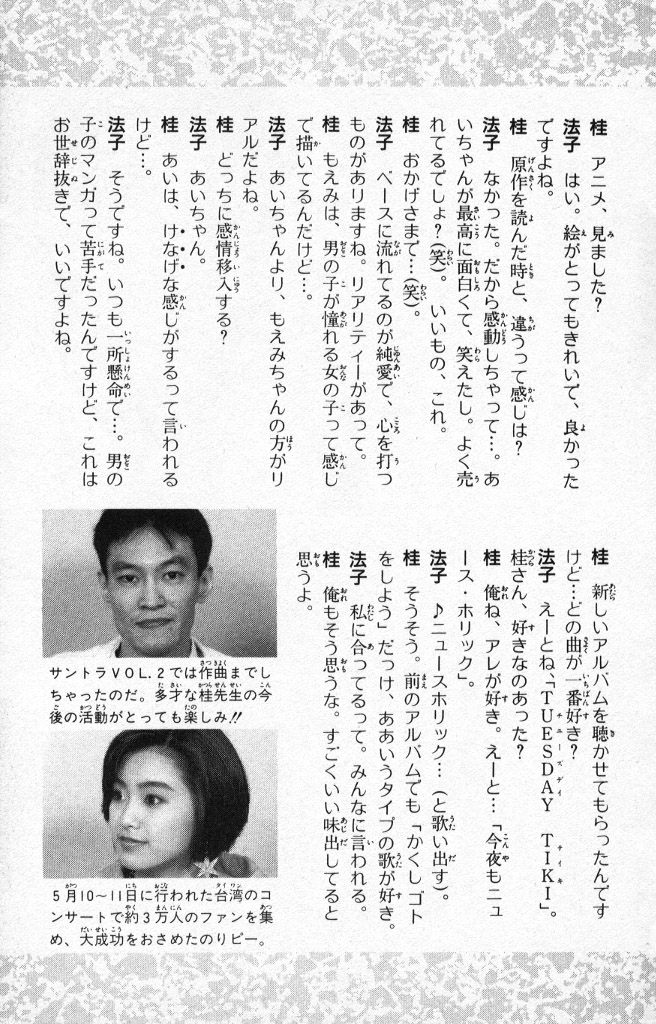 桂　アニメ、見ました？
法子　はい。絵がとってもきれいで、良かった
ですよね。
桂　原作を読んだ時と、違うって感じは？
法子　なかった。だから感動しちゃって…。あ
いちゃんが最高に面白くて、笑えたし。よく売
れてるでしょ？(笑)。いいもの、これ。
桂　おかげさまで…(笑)。
法子　ベースに流れてるのが純愛で、心を打つ
ものがありますね。リアリティーがあって。
桂　もえみは、男の子が憧れる女の子って感じ
で描いてるんだけど…。
法子　あいちゃんより、もえみちゃんの方がリ
アルだよね。
桂　どっちに感情移入する？
法子　あいちゃん。
桂　あいは、けなげな感じがするって言われる
けど…。
法子　そうですね。いつも一所懸命で…。男の
子のマンガって苦手だったんですけど、これは
お世辞抜きで、いいですよね。
桂　新しいアルバムを聴かせてもらったんです
けど…どの曲が一番好き？
法子　えーとね、「TUESDAY　TIKI」。
桂さん、好きなのあった？
桂　俺ね、アレが好き。えーと…「今夜もニュ
ース・ホリック」。
法子　♪ニュースホリック…(と歌い出す)。
桂　そうそう。前のアルバムでも「かくしゴト
をしよう」だっけ、ああいうタイプの歌が好き。
法子　私に合ってるって。みんなに言われる。
桂　俺もそう思うな。すごくいい味出してると
思うよ。
サントラVOL.2では作曲までし
ちゃったのだ。多才な桂先生の今
後の活動がとっても楽しみ!!
5月10〜11日に行われた台湾のコ
ンサートで約3万人のファンを集
め、大成功をおさめたのりピー。